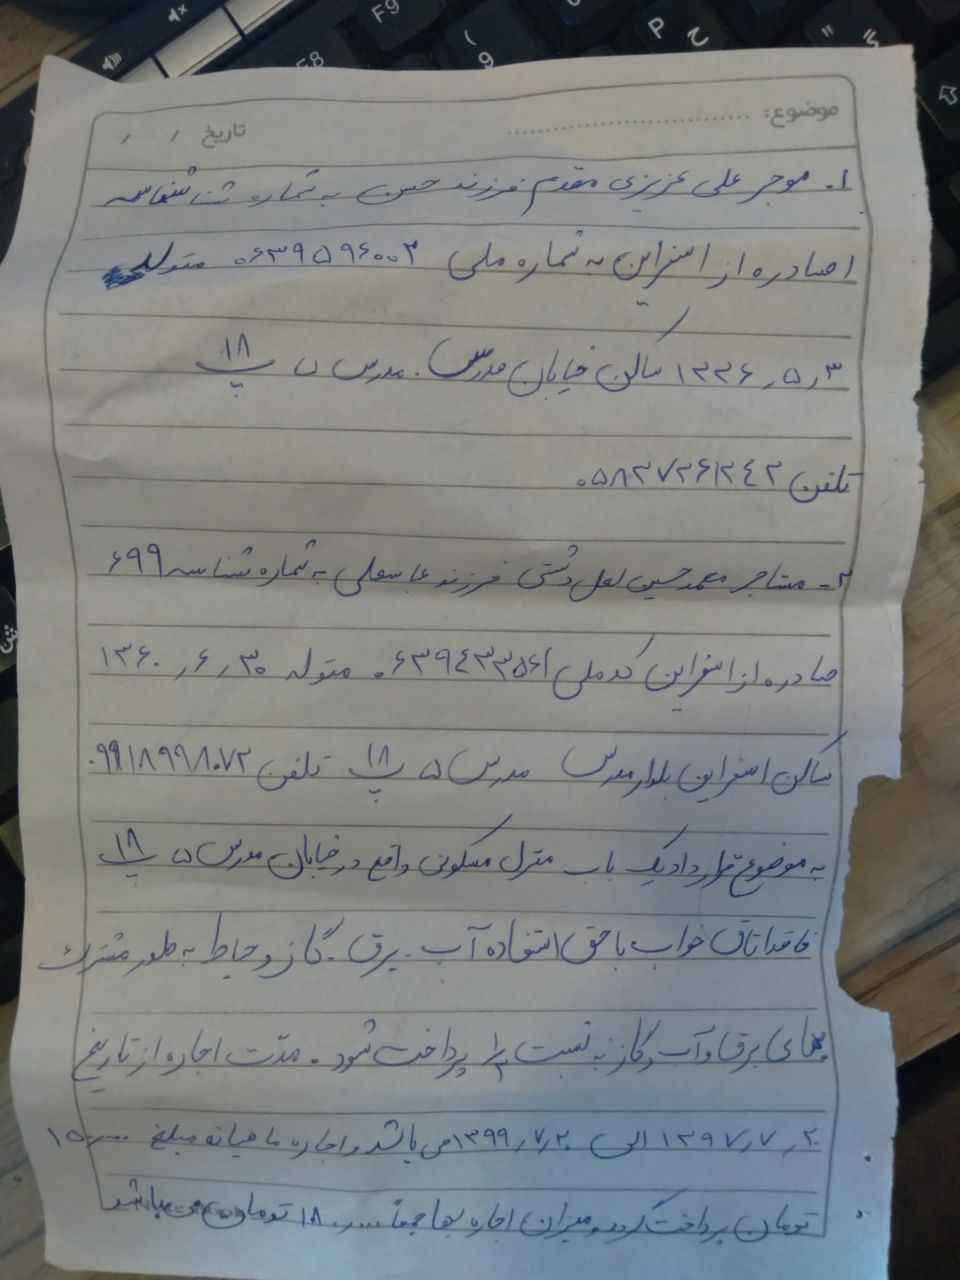 موضوع: ............................ تاریخ / /
۱. موجر علی عزیزی مقدم فرزند حسن به شماره شناسنامه
۱ صادره از اسفراین به شماره ملی ۰۶۳۹۵۹۶۰۰۲ متولد
۳ر۵ر۱۳۳۶ ساکن خیابان مدرس. مدرس ۵ پ ۱۸
تلفن ۰۵۸۳۷۲۶۱۲۴۲
۲- مستاجر محمدحسین لعل دشتی فرزند عباسعلی به شماره شناسه ۶۹۹
صادره از اسفراین کد ملی ۰۶۳۹۴۳۳۵۶۱ متولد ۳۰ر۶ر۱۳۶۰
ساکن اسفراین بلوار مدرس مدرس ۵ پ ۱۸ تلفن ۰۹۹۱۸۹۹۸۰۷۲
به موضوع قرارداد یک باب منزل مسکونی واقع در خیابان مدرس ۵ پ ۱۸
فاقد اتاق خواب با حق استفاده آب. برق. گاز و حیاط به طور مشترک
بهای برق و آب و گاز به نسبت پرداخت شود. مدت اجاره از تاریخ
۲۰ر۷ر۱۳۹۷ الی ۲۰ر۷ر۱۳۹۹ می باشد و اجاره ماهیانه مبلغ
تومان پرداخت گردد و میزان اجاره بها جمعاً تومان می باشد